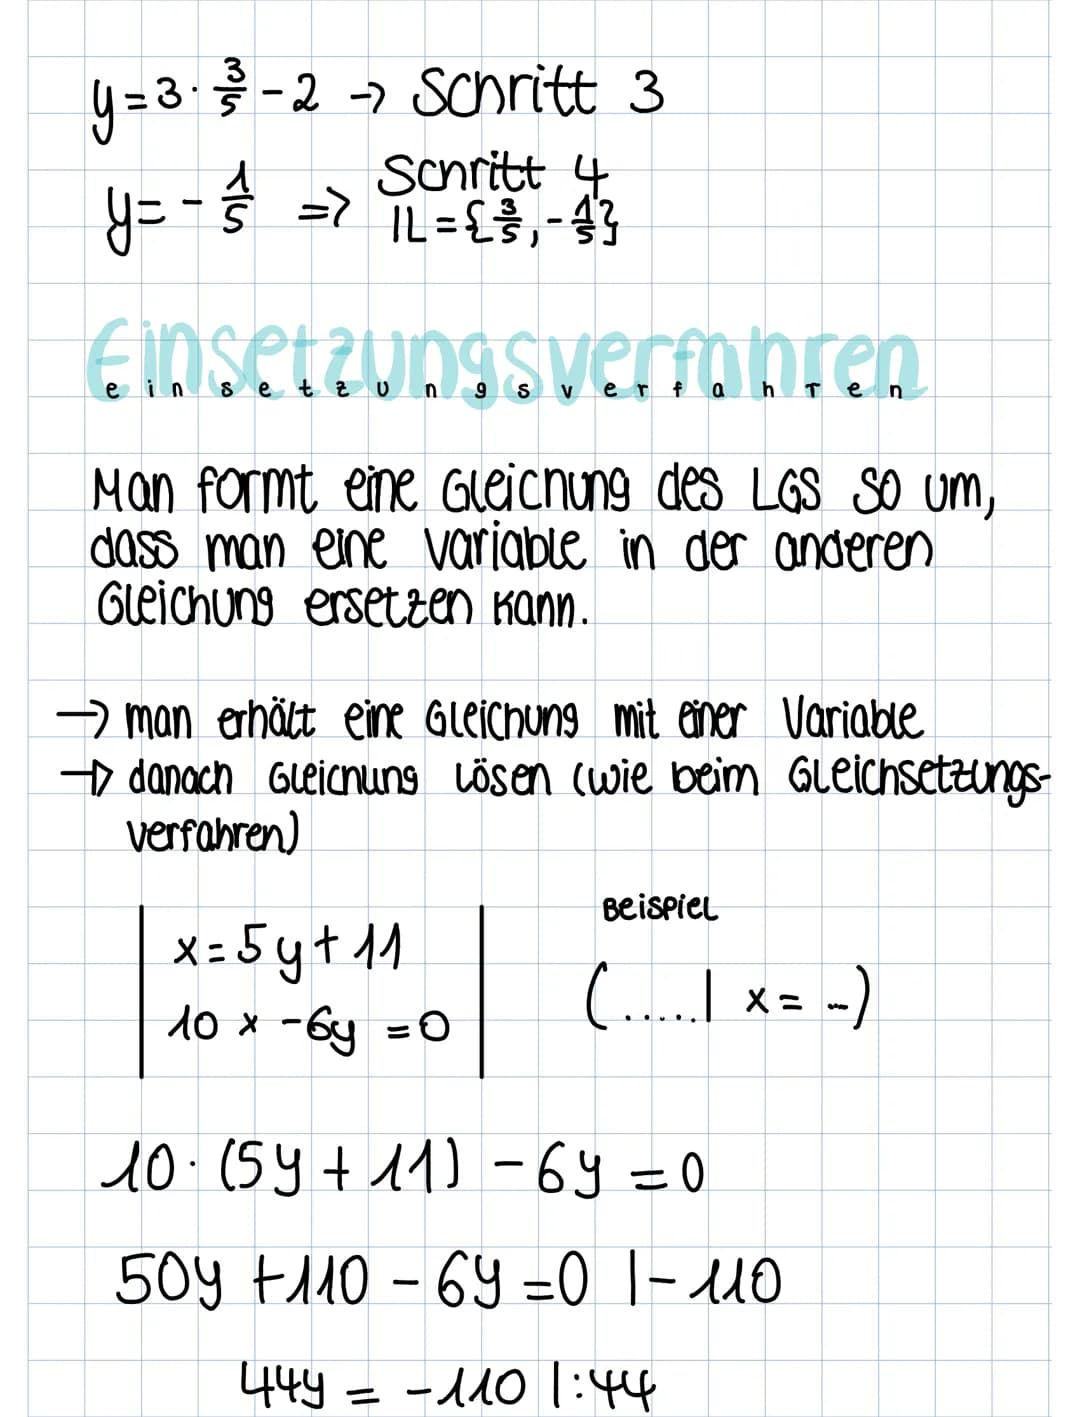 y=3·3/5-2 → Schritt 3
Schritt 4
y=-1/5 => IL={3/5,-1/5}
Einsetzungsverfahren
einsetzungsverfahren
Man formt eine Gleichung des LGS so um,
dass man eine Variable in der anderen
Gleichung ersetzen kann.
→ man erhält eine Gleichung mit einer Variable
→ danach Gleichung lösen (wie beim Gleichsetzungs-
verfahren)
Beispiel
x=5y+11
10x-6y=0
(.....| x= -)
10·(5y+11)-6y=0
50y+110-6y=0 |-110
44y=-110 |:44